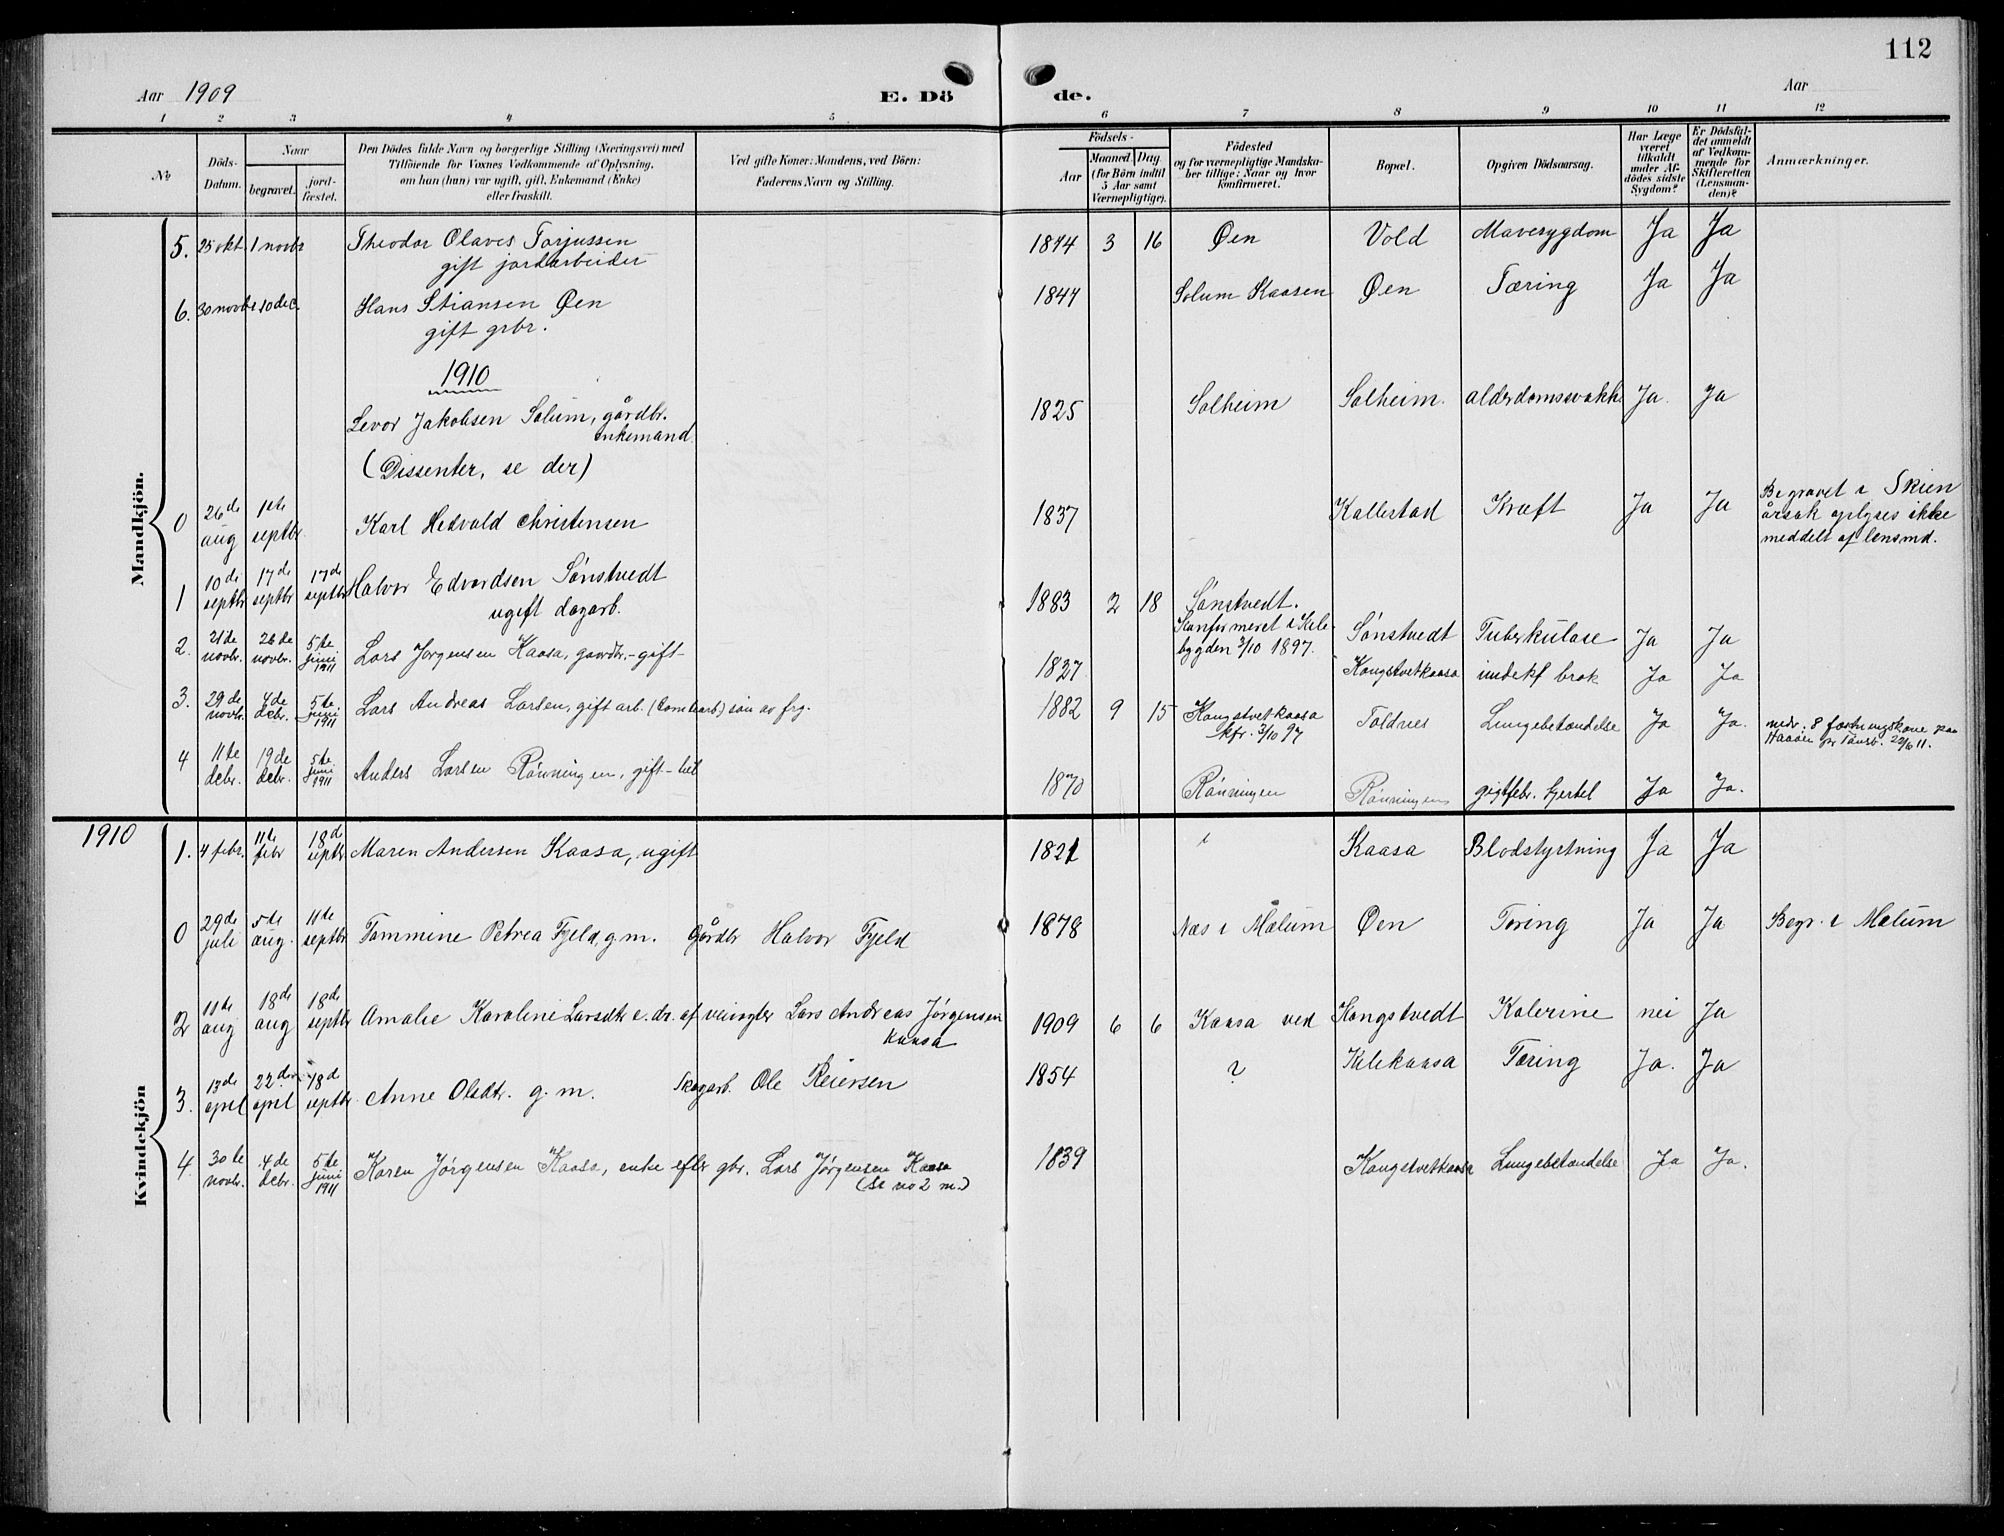 112
Aar 1909
E. Dö
de.
Aar
1 2 3 4 5 6 7 8 9 10 11 12
№
Döds-
Datum.
Naar
begravet.
jord-
fæstet.
Den Dödes fulde Navn og borgerlige Stilling (Næringsvei) med
Tilföiende for Voxnes Vedkommende af Oplysning,
om han (hun) var ugift, gift, Enkemand (Enke)
eller fraskilt.
Ved gifte Koner: Mandens, ved Börn:
Faderens Navn og Stilling.
Födsels-
Aar
Maaned. Dag.
(for Börn indtil
5 Aar samt
Værnepligtige).
Födested
og for værnepligtige Mandska-
ber tillige: Naar og hvor
konfirmeret.
Bopæl.
Opgiven Dödsaarsag.
Har Læge
været
tilkaldt
under Af-
dödes sidste
Sygdom?
Er Dödsfal-
det anmeldt
af Vedkom-
mende for
Skifteretten
(Lensman-
den)?
Anmærkninger.
Mandkjön.
5. 25 okt. 1 novbr Theodor Olaves Torjussen 1874 3 16 Øen Vold Mavesygdom Ja Ja
gift jordarbeider
6. 30 novbr 10 dec. Hans Stiansen Øen 1847 Solum Kaasen Øen Tæring Ja Ja
gift grbr.
1910
Levor Jakobsen Solum, gårdbr. 1825 Solheim Solheim. alderdomssvakh Ja. Ja
enkemand
(Dissenter, se der)
0 26de aug 1ste septbr. Karl Hedvald Christensen 1837 Kallestad Kræft Ja Ja Begravet i Skien
årsak oplyses ikke
meddelt af lensmd.
1 10de septbr 17de septbr 17de septbr Halvor Edvardsen Sønstvedt 1883 2 18 Sønstvedt.
ugift dagarb.
Konfirmeret i Kile-
bygden 3/10 1897. Sønstvedt Tuberkulose Ja Ja
2. 21de novbr. 26de novbr. 5te juni 1911 Lars Jørgensen Kaasa, gaardbr. - gift - 1827 Kongstvetkaasa indekl brok Ja Ja
3. 29de novbr. 4de debr. 5te juni 1911 Lars Andreas Larsen, gift arb. søn av frg. 1882 9 15 Kongstvetkaasa
kfr. 3/10 97 Toldnes Lungebetændelse Ja Ja.
4 11te debr. 19de debr. 5te juni 1911 Anders Larsen Rønningen, gift - 1870 Rønningen Rønningen gigtfebr. hjertel Ja Ja.
1910
Kvindekjön
1. 4 febr. 11te febr 18d septbr Maren Andersen Kaasa, ugift 1821 Kaasa Blodstyrtning Ja Ja
0 29de juli 5de aug. 11te septbr Tommine Petrea Fjeld, g.m. Gårdbr Halvor Fjeld 1878 Næs i Mælum Øen Tæring Ja Ja Begr. i Mælum
2 11te aug 18de aug 18de septbr Amalie Karoline Larsdtr e. dr. af veivogter Lars Andreas Jørgensen 1909 6 6 Kaasa ved Kongstvedt Kolerine nei Ja
Kaasa
3. 13de april 22de april 18de septbr. Anne Olsdtr. g. m. Skogarb. Ole Reiersen 1854 ? Kilekaasa Tæring Ja. Ja
4. 30te novbr. 4de debr. 5te juni 1911 Karen Jørgensen Kaasa, enke efter gbr. Lars Jørgensen Kaasa 1839 Kongstvetkaasa Lungebetændelse Ja Ja.
(se no 2 m.)